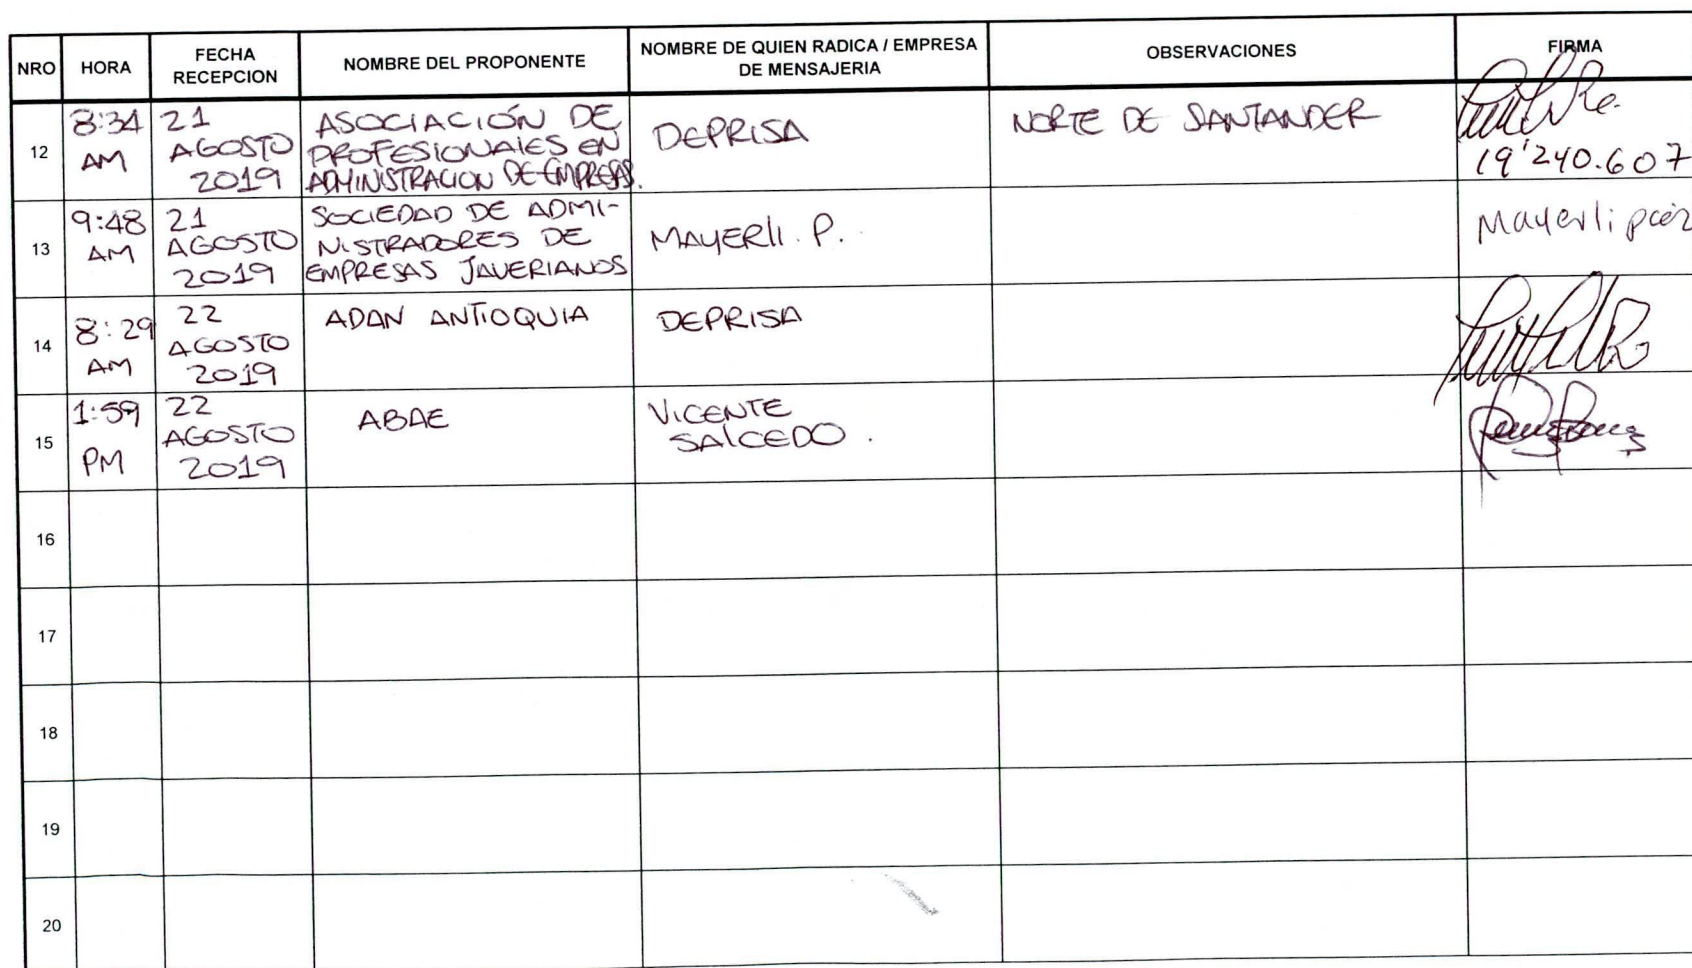 NRO HORA FECHA RECEPCION NOMBRE DEL PROPONENTE NOMBRE DE QUIEN RADICA / EMPRESA DE MENSAJERIA OBSERVACIONES FIRMA
12
8:34
AM
21
AGOSTO
2019
ASOCIACIÓN DE
PROFESIONALES EN
ADMINISTRACION DE EMPRESAS.
DEPRISA
NORTE DE SANTANDER
19'240.607
13
9:48
AM
21
AGOSTO
2019
SOCIEDAD DE ADMI-
NISTRADORES DE
EMPRESAS JAVERIANOS
MAYERLI. P.
Mayerli paéz
14
8:29
AM
22
AGOSTO
2019
ADAN ANTIOQUIA
DEPRISA
15
1:59
PM
22
AGOSTO
2019
ABAE
VICENTE
SALCEDO.
16
17
18
19
20